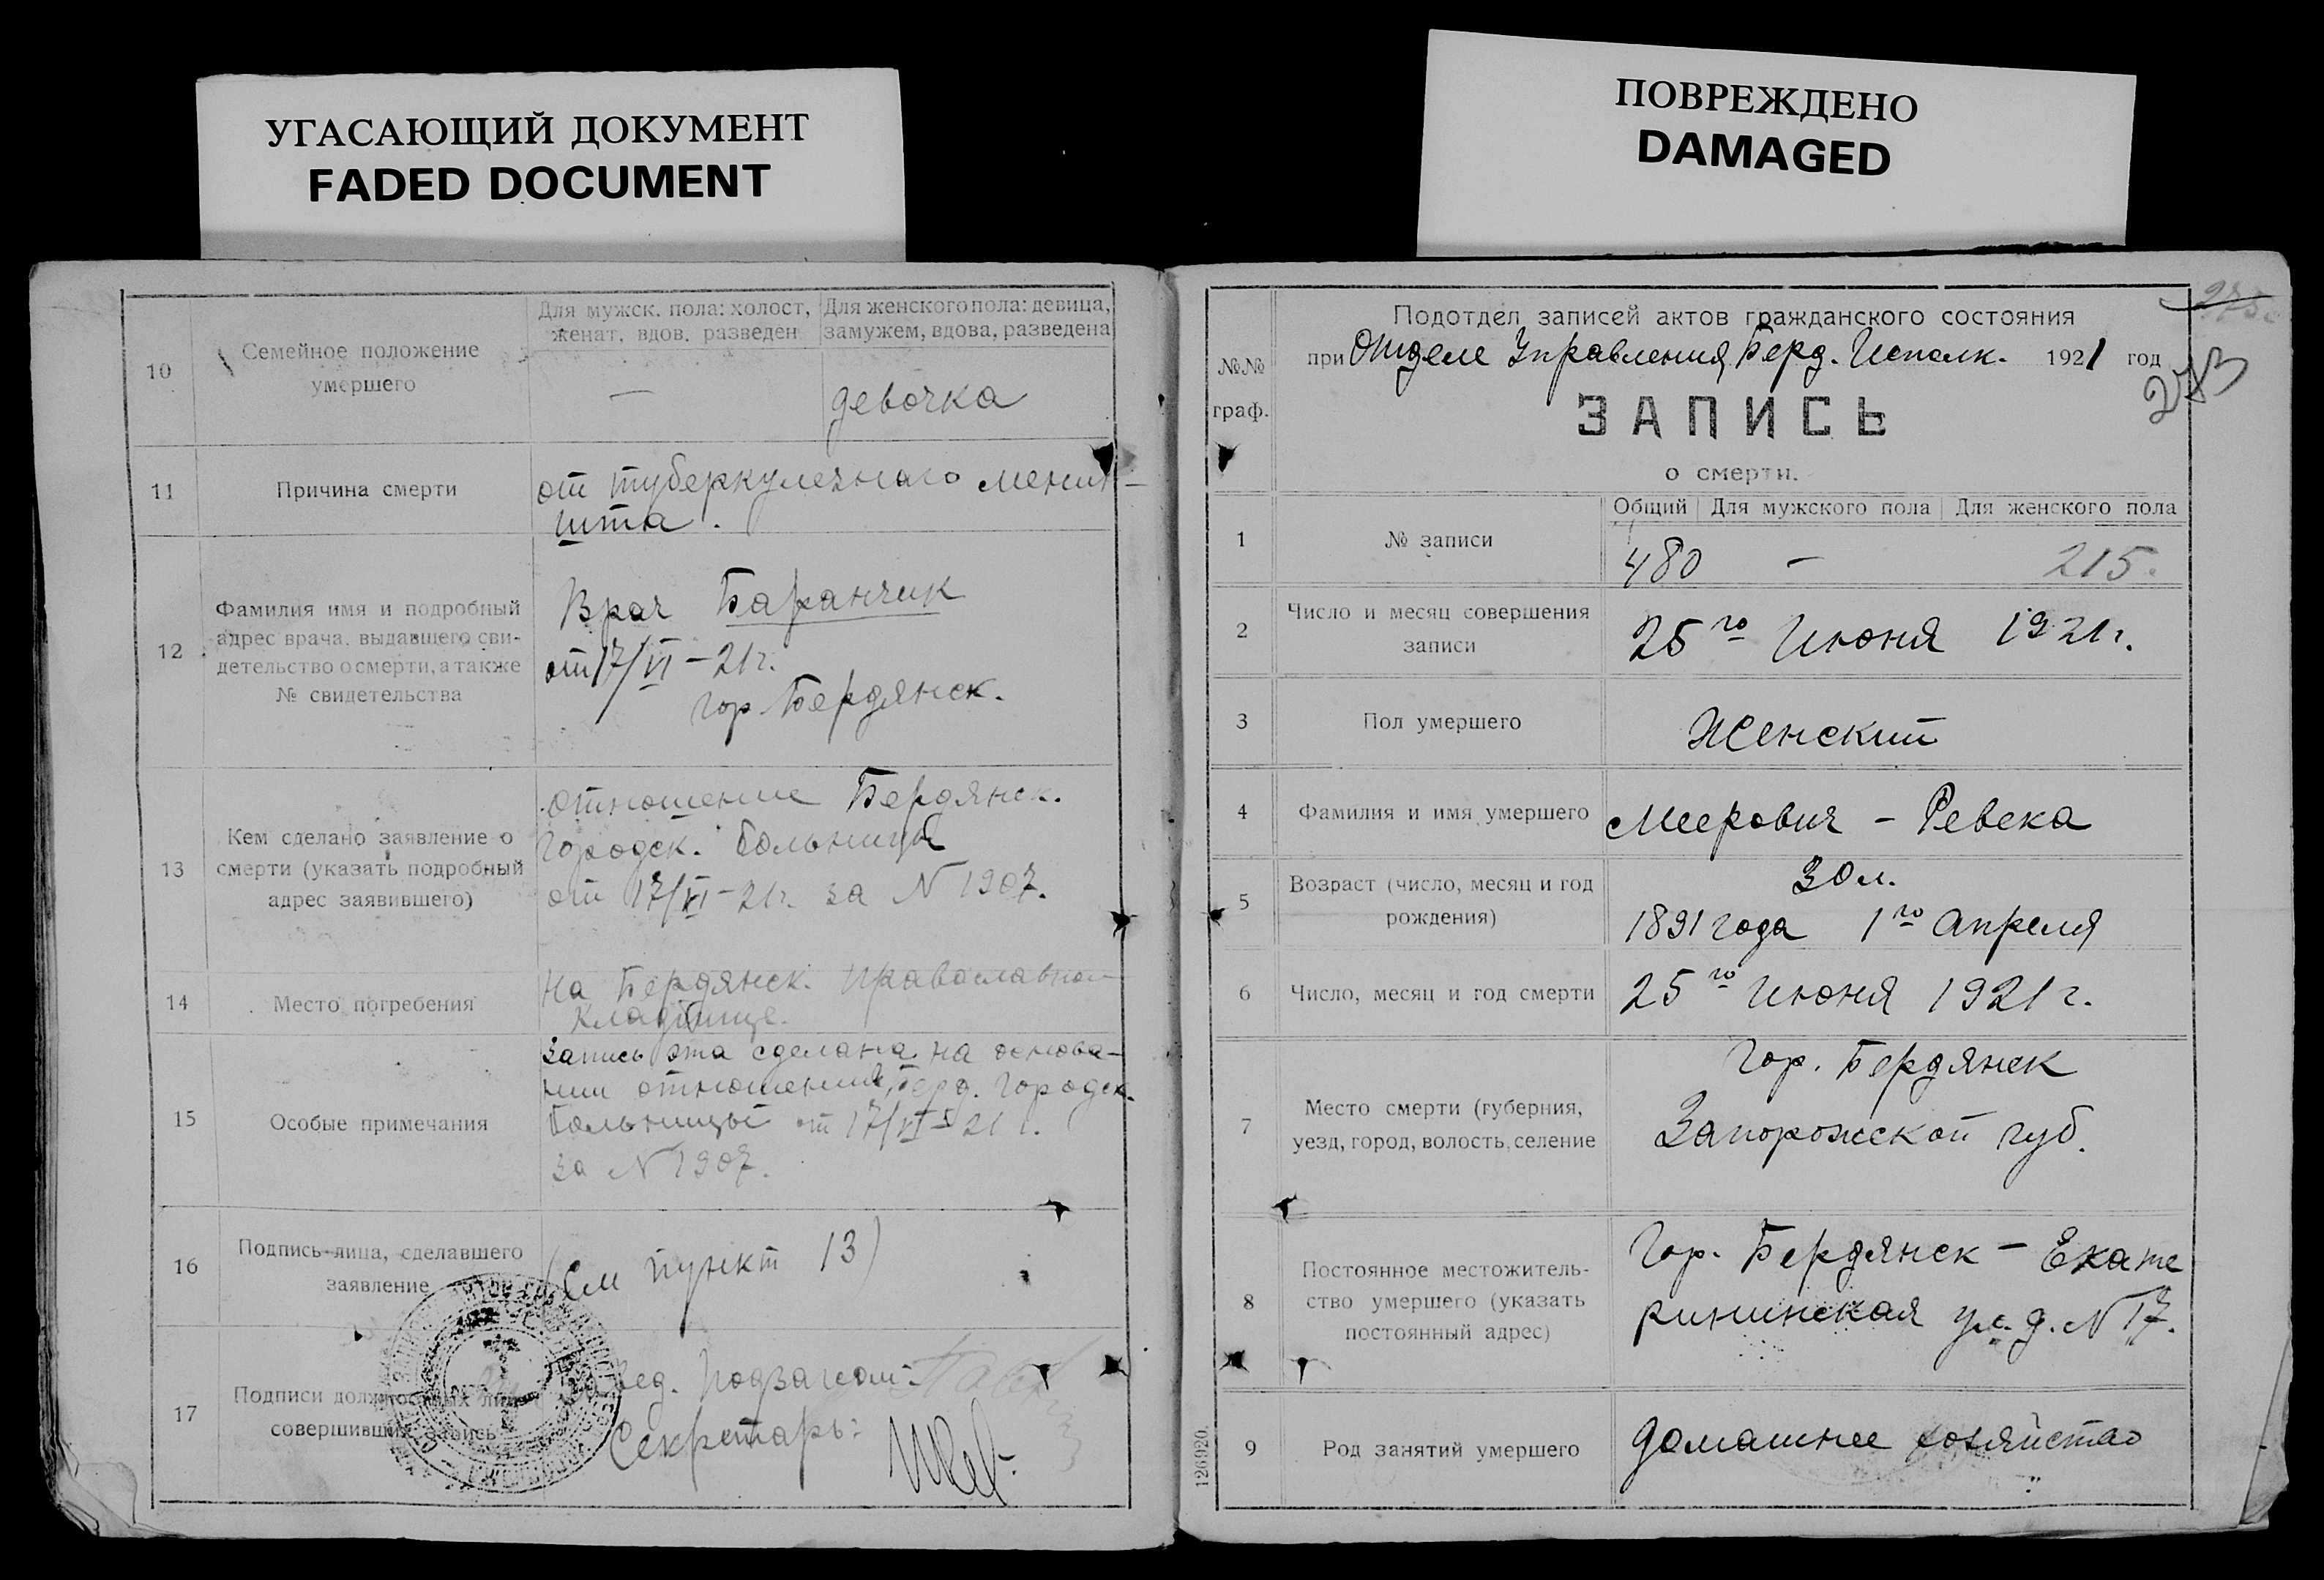 УГАСАЮЩИЙ ДОКУМЕНТ
FADED DOCUMENT
ПОВРЕЖДЕНО
DAMAGED
10
Семейное положение
умершего
Для мужск. пола: холост,
женат, вдов, разведен
Для женского пола: девица,
замужем, вдова, разведена
—
девочка
11
Причина смерти
от туберкулезнаго менин-
гита.
12
Фамилия имя и подробный
адрес врача, выдавшего сви-
детельство о смерти, а также
№ свидетельства
Врач Баранчик
от 17/VI – 21 г.
гор. Бердянск.
13
Кем сделано заявление о
смерти (указать подробный
адрес заявившего)
отношение Бердянск.
Городск. больницы
от 17/VI – 21 г. за N 1907.
14
Место погребения
На Бердянск. православном
кладбище.
15
Особые примечания
Запись эта сделана на основа-
нии отношения Берд. Городск.
больницы от 17/VI – 21 г.
за N 1907.
16
Подпись лица, сделавшего
заявление
(см пункт 13)
17
Подписи должностных лиц
совершивших запись
Завед. Подзагсом:
Секретарь:
№№
граф.
Подотдел записей актов гражданского состояния
при Отделе Управления Берд. Исполк. 1921 год
273
ЗАПИСЬ
о смерти.
1
№ записи
Общий
Для мужского пола
Для женского пола
480
–
215.
2
Число и месяц совершения
записи
25го Июня 1921 г.
3
Пол умершего
Женский
4
Фамилия и имя умершего
Меерович – Ревека
5
Возраст (число, месяц и год
рождения)
30 л.
1891 года 1го Апреля
6
Число, месяц и год смерти
25го Июня 1921 г.
7
Место смерти (губерния,
уезд, город, волость, селение
Гор. Бердянск
Запорожской губ.
8
Постоянное местожитель-
ство умершего (указать
постоянный адрес)
Гор. Бердянск – Екате
рининская ул. д. N 17.
9
Род занятий умершего
домашнее хозяйство
126920.